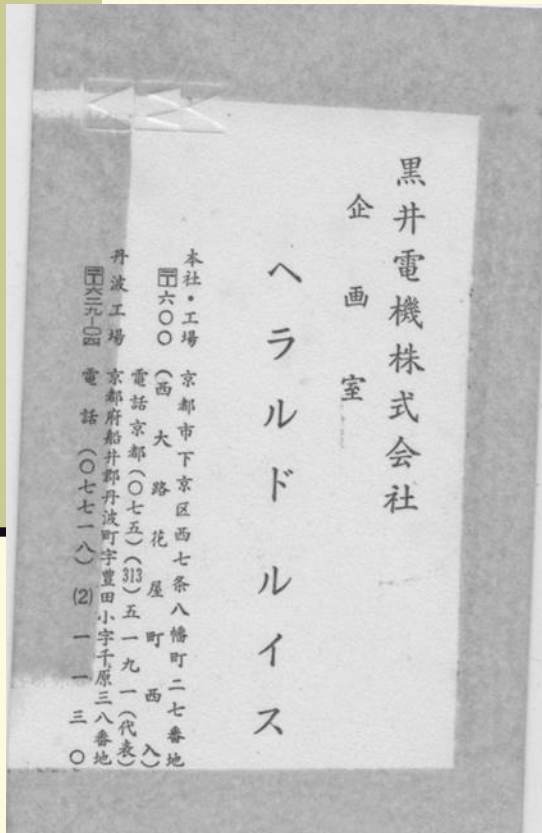 黒井電機株式会社
企画室
ヘラルド ルイス
本社・工場 京都市下京区西七条八幡町二七番地
〒六〇〇 (西大路花屋町西入)
電話京都(〇七五)(313)五一九一(代表)
丹波工場 京都府船井郡丹波町字豊田小字千原三八番地
〒六二九-〇四 電話(〇七七一八)(2)一一三〇